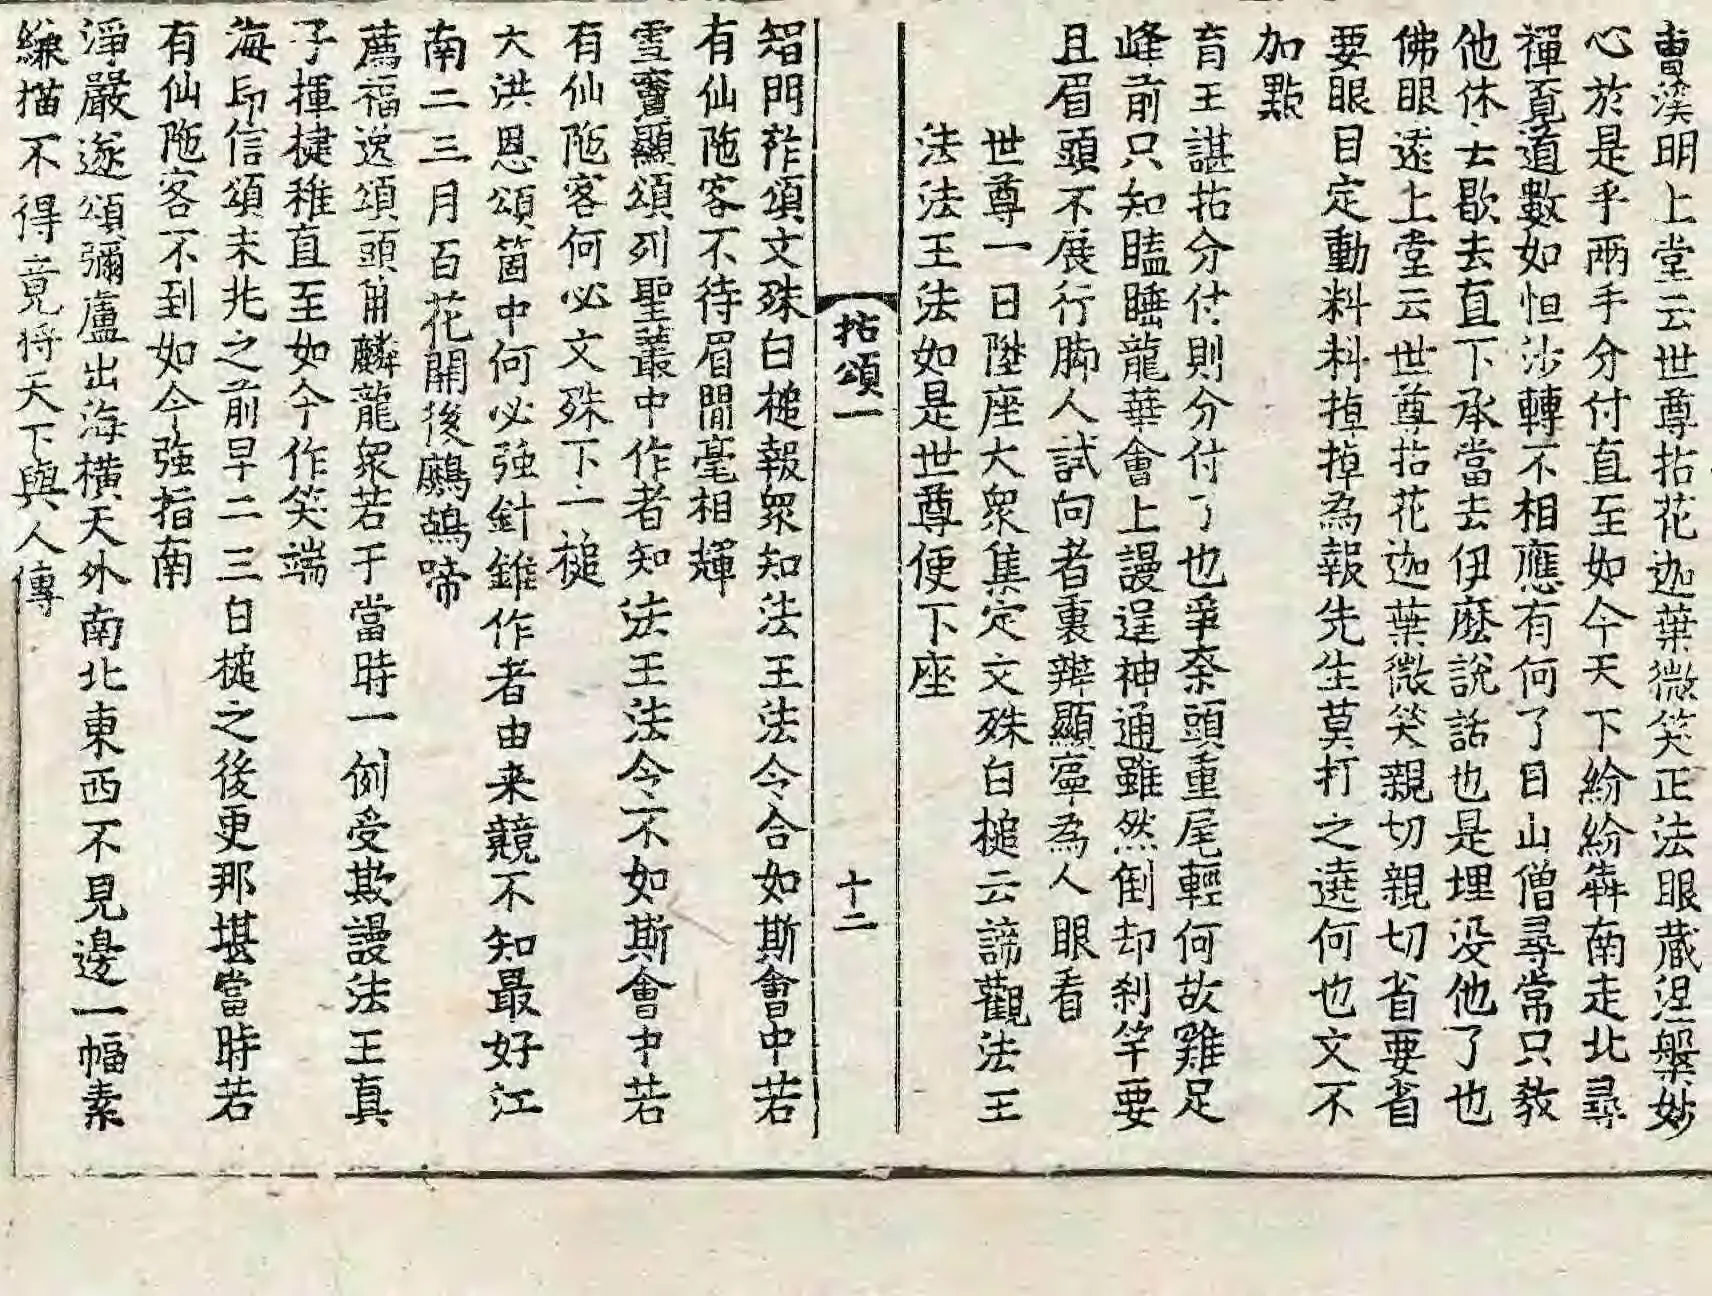 曹溪明上堂云世尊拈花迦葉微笑正法眼藏涅槃妙
心於是乎兩手分付直至如今天下紛紛犇南走北尋
禪覓道數如恒沙轉不相應有何了日山僧尋常只教
他休去歇去直下承當去伊麽說話也是埋没他了也
佛眼遠上堂云世尊拈花迦葉微笑親切親切省要省
要眼目定動料料掉掉為報先生莫打之遶何也文不
加點
育王諶拈分付則分付了也爭柰頭重尾輕何故雞足
峰前只知瞌睡龍華會上謾逞神通雖然倒却刹竿要
且眉頭不展行脚人試向者裏辨顯寧為人眼看
世尊一日陞座大衆集定文殊白槌云諦觀法王
法法王法如是世尊便下座
拈頌一
十二
智門祚頌文殊白槌報衆知法王法令合如斯會中若
有仙陁客不待眉間毫相輝
雪竇顯頌列聖叢中作者知法王法令不如斯會中若
有仙陁客何必文殊下一槌
大洪恩頌箇中何必強針錐作者由来競不知最好江
南二三月百花開後鷓鴣啼
薦福逸頌頭角麟龍衆若于當時一例受欺謾法王真
子揮揵稚直至如今作笑端
海印信頌未兆之前早二三白槌之後更那堪當時若
有仙陁客不到如今強指南
淨嚴遂頌彌盧出海橫天外南北東西不見邊一幅素
縑描不得竟將天下與人傳